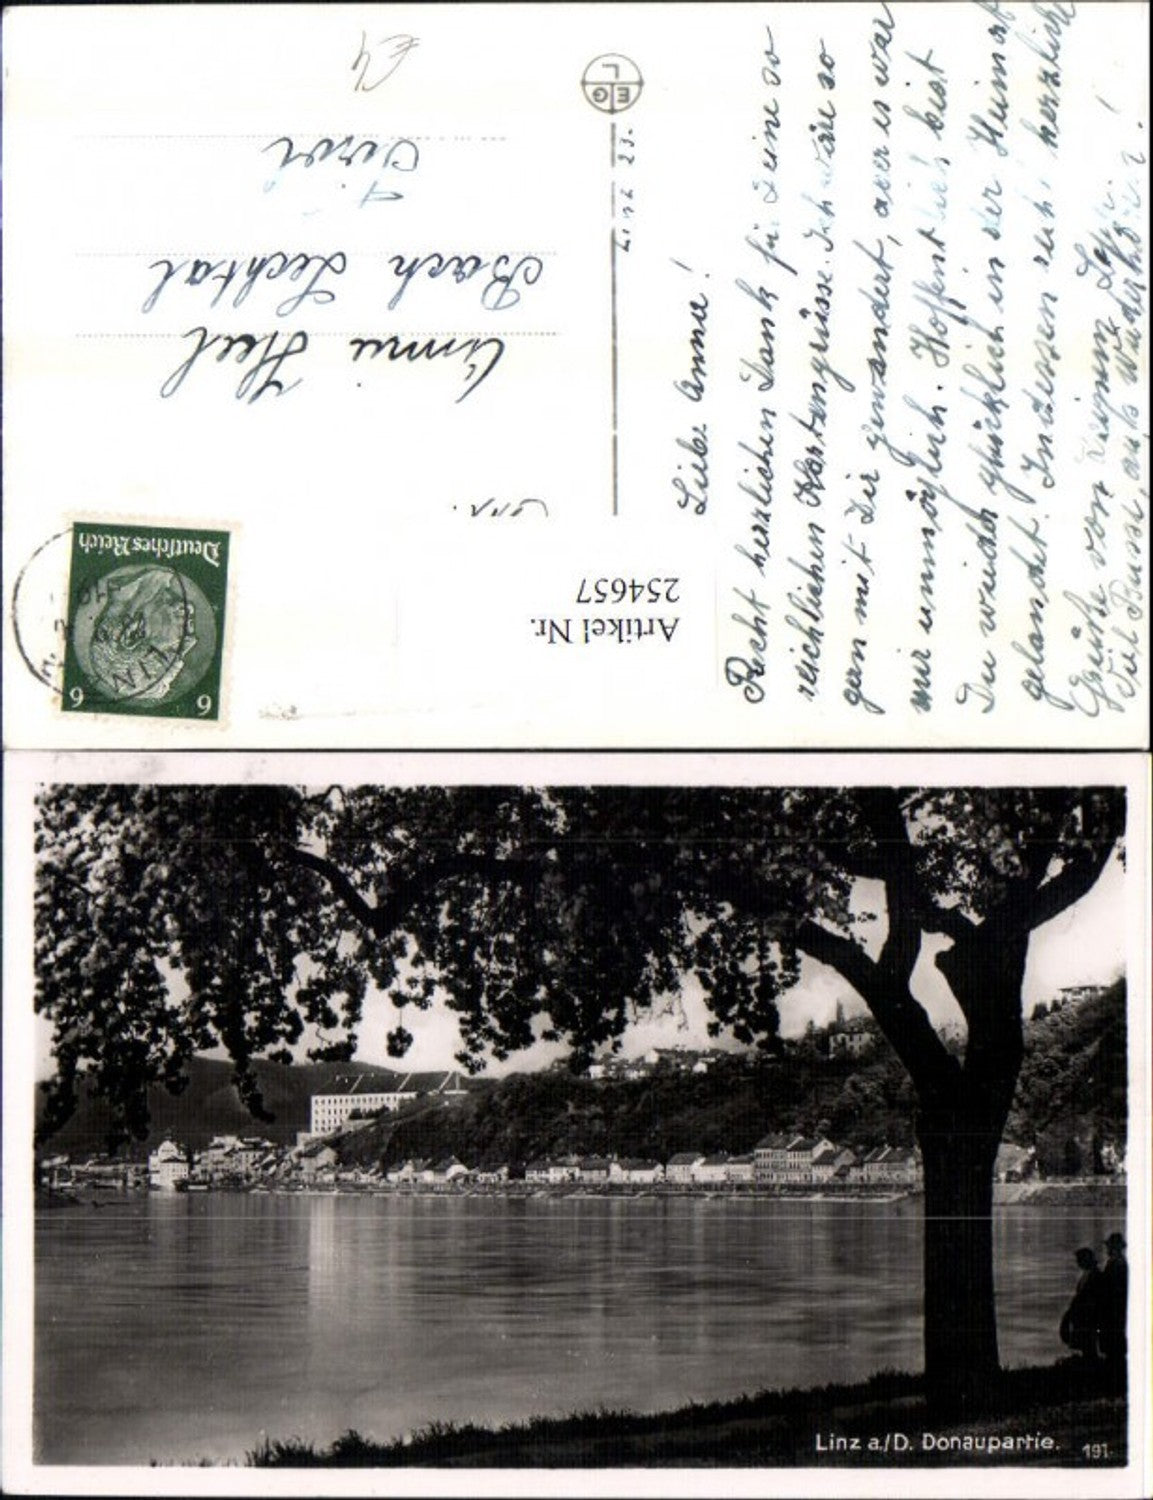 Liebe Anna!
Recht herzlichen Dank für Deine so
reichlichen Kartengrüsse. Ich wäre so
gern mit Dir gewandert, aber es war
mir unmöglich. Hoffentlich bist
Du wieder glücklich in der Heimat
gelandet. Indessen recht herzliche
Grüße von Deiner
Viel Busse, auf Wiederhören!
Linz 23.
E G
L
Deutsches Reich
6 6
LINZ
Bach Lechtal
Tirol
Artikel Nr.
254657
Linz a./D. Donaupartie.
191